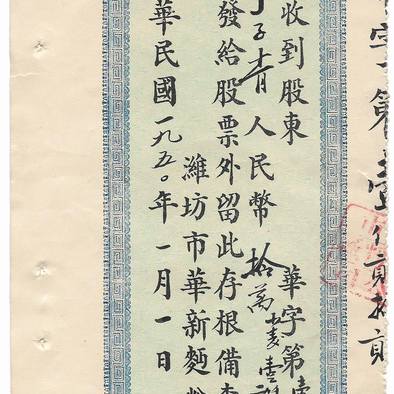 字第壹仟貳拾貳
收到股東 華字第壹
丁子青人民幣拾萬
發給股票外留此存根備查
濰坊市華新麵粉
華民國一九五〇年一月一日